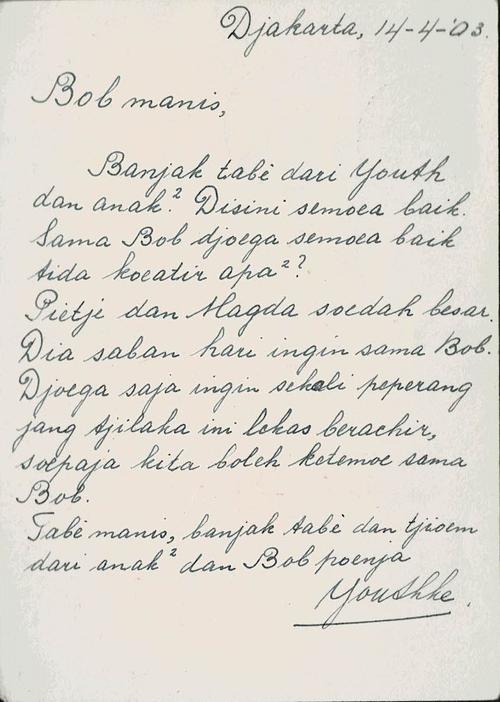 Djakarta, 14-4-'03.
Bob manis,
Banjak tabê dari Youth
dan anak.² Disini semoea baik.
Sama Bob djoega semoea baik
tida koeatir apa²?
Pietje dan Magda soedah besar.
Dia saban hari ingin sama Bob.
Djoega saja ingin sekali peperang
jang tjilaka ini lekas berachir,
soepaja kita boleh ketemoe sama
Bob.
Tabê manis, banjak tabê dan tjioem
dari anak² dan Bob poenja
Youthke.